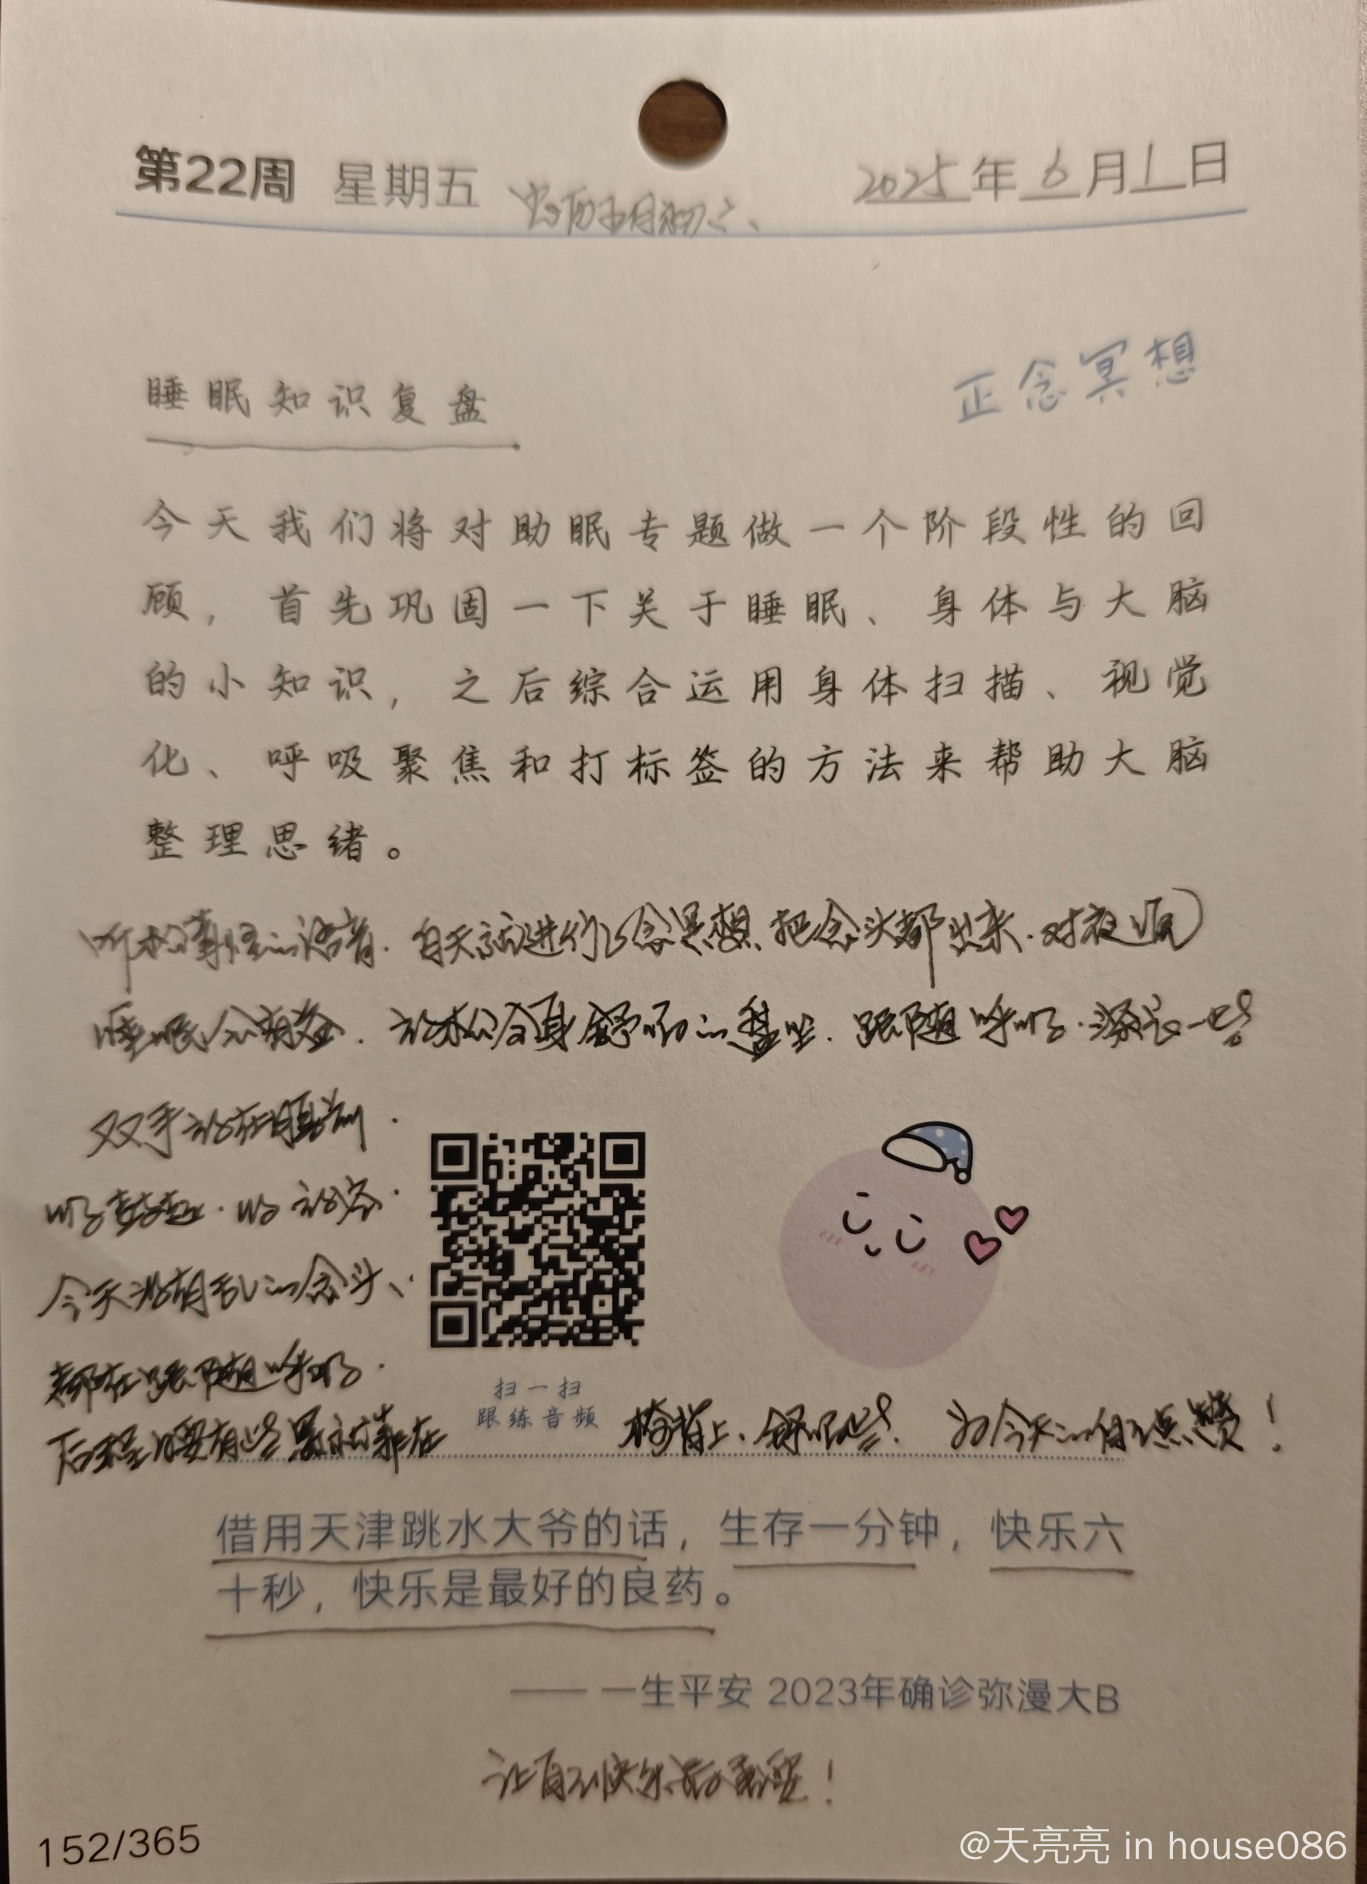 第22周 星期五 农历五月初六、 2025年6月1日
正念冥想
睡眠知识复盘
今天我们将对助眠专题做一个阶段性的回
顾，首先巩固一下关于睡眠、身体与大脑
的小知识，之后综合运用身体扫描、视觉
化、呼吸聚焦和打标签的方法来帮助大脑
整理思绪。
白天就进行正念冥想、把念头都出来.对夜晚
睡眠会有益. 全身舒服的盘坐.跟随呼吸.深长一些
双手放在腿前.
吸 鼓起.呼 放松.
今天没有乱的念头、
都在跟随呼吸.
后来腰有些累就靠在椅背上、舒服些. 为今天的自己点赞！
扫一扫
跟练音频
借用天津跳水大爷的话，生存一分钟，快乐六
十秒，快乐是最好的良药。
—— 一生平安 2023年确诊弥漫大B
让自己快乐最重要！
152/365
@天亮亮 in house086